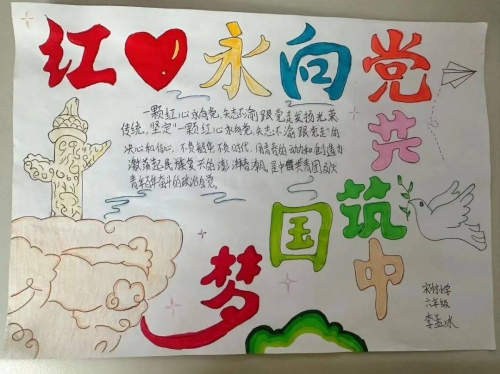 红心永向党
共筑中国梦
一颗红心永向党,矢志不渝跟党走发扬光荣
传统,坚定"一颗红心永向党,矢志不渝跟党走"的
决心和信心,不负韶华不负时代,用青春的动力和创造力
激荡起民族复兴的澎湃春潮,是中国共青团员和
青年在奋斗的政治自觉。
六年级
李孟冰